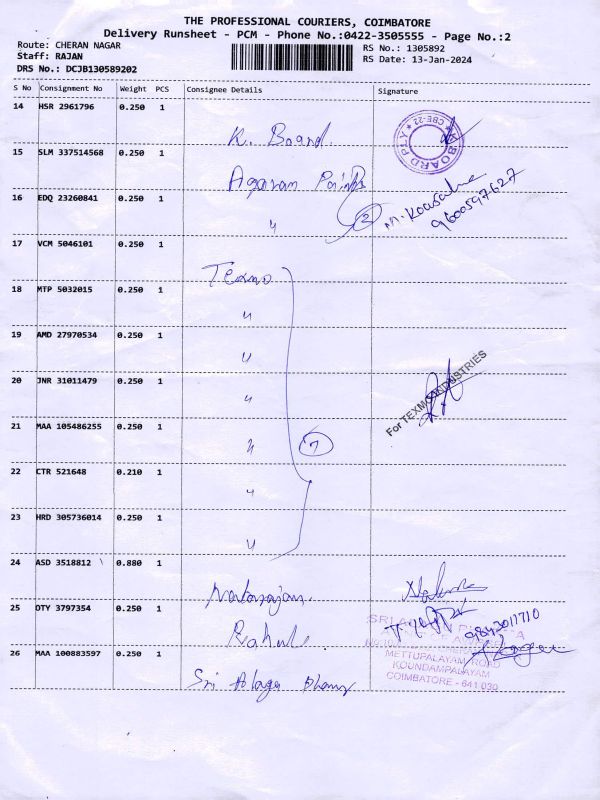 THE PROFESSIONAL COURIERS, COIMBATORE
Delivery Runsheet - PCM - Phone No.:0422-3505555 - Page No.:2
Route: CHERAN NAGAR
RS No.: 1305892
Staff: RAJAN
RS Date: 13-Jan-2024
DRS No.: DCJB130589202
S No Consignment No Weight PCS Consignee Details Signature
14 HSR 2961796 0.250 1
K. Board
BOARD PTY CBE-22
15 SLM 337514568 0.250 1
Agaram Paints
16 EDQ 23260841 0.250 1
" 2
M. Kousalya
9600597627
17 VCM 5046101 0.250 1
Texmo
18 MTP 5032015 0.250 1
"
19 AMD 27970534 0.250 1
"
20 JNR 31011479 0.250 1
"
For TEXMO INDUSTRIES
21 MAA 105486255 0.250 1
" 7
22 CTR 521648 0.210 1
"
23 HRD 305736014 0.250 1
"
24 ASD 3518812 0.880 1
Natarajan
25 OTY 3797354 0.250 1
Rahul
9843011710
26 MAA 100883597 0.250 1
Sri Alaga
METTUPALAYAM ROAD
KOUNDAMPALAYAM
COIMBATORE - 641 030